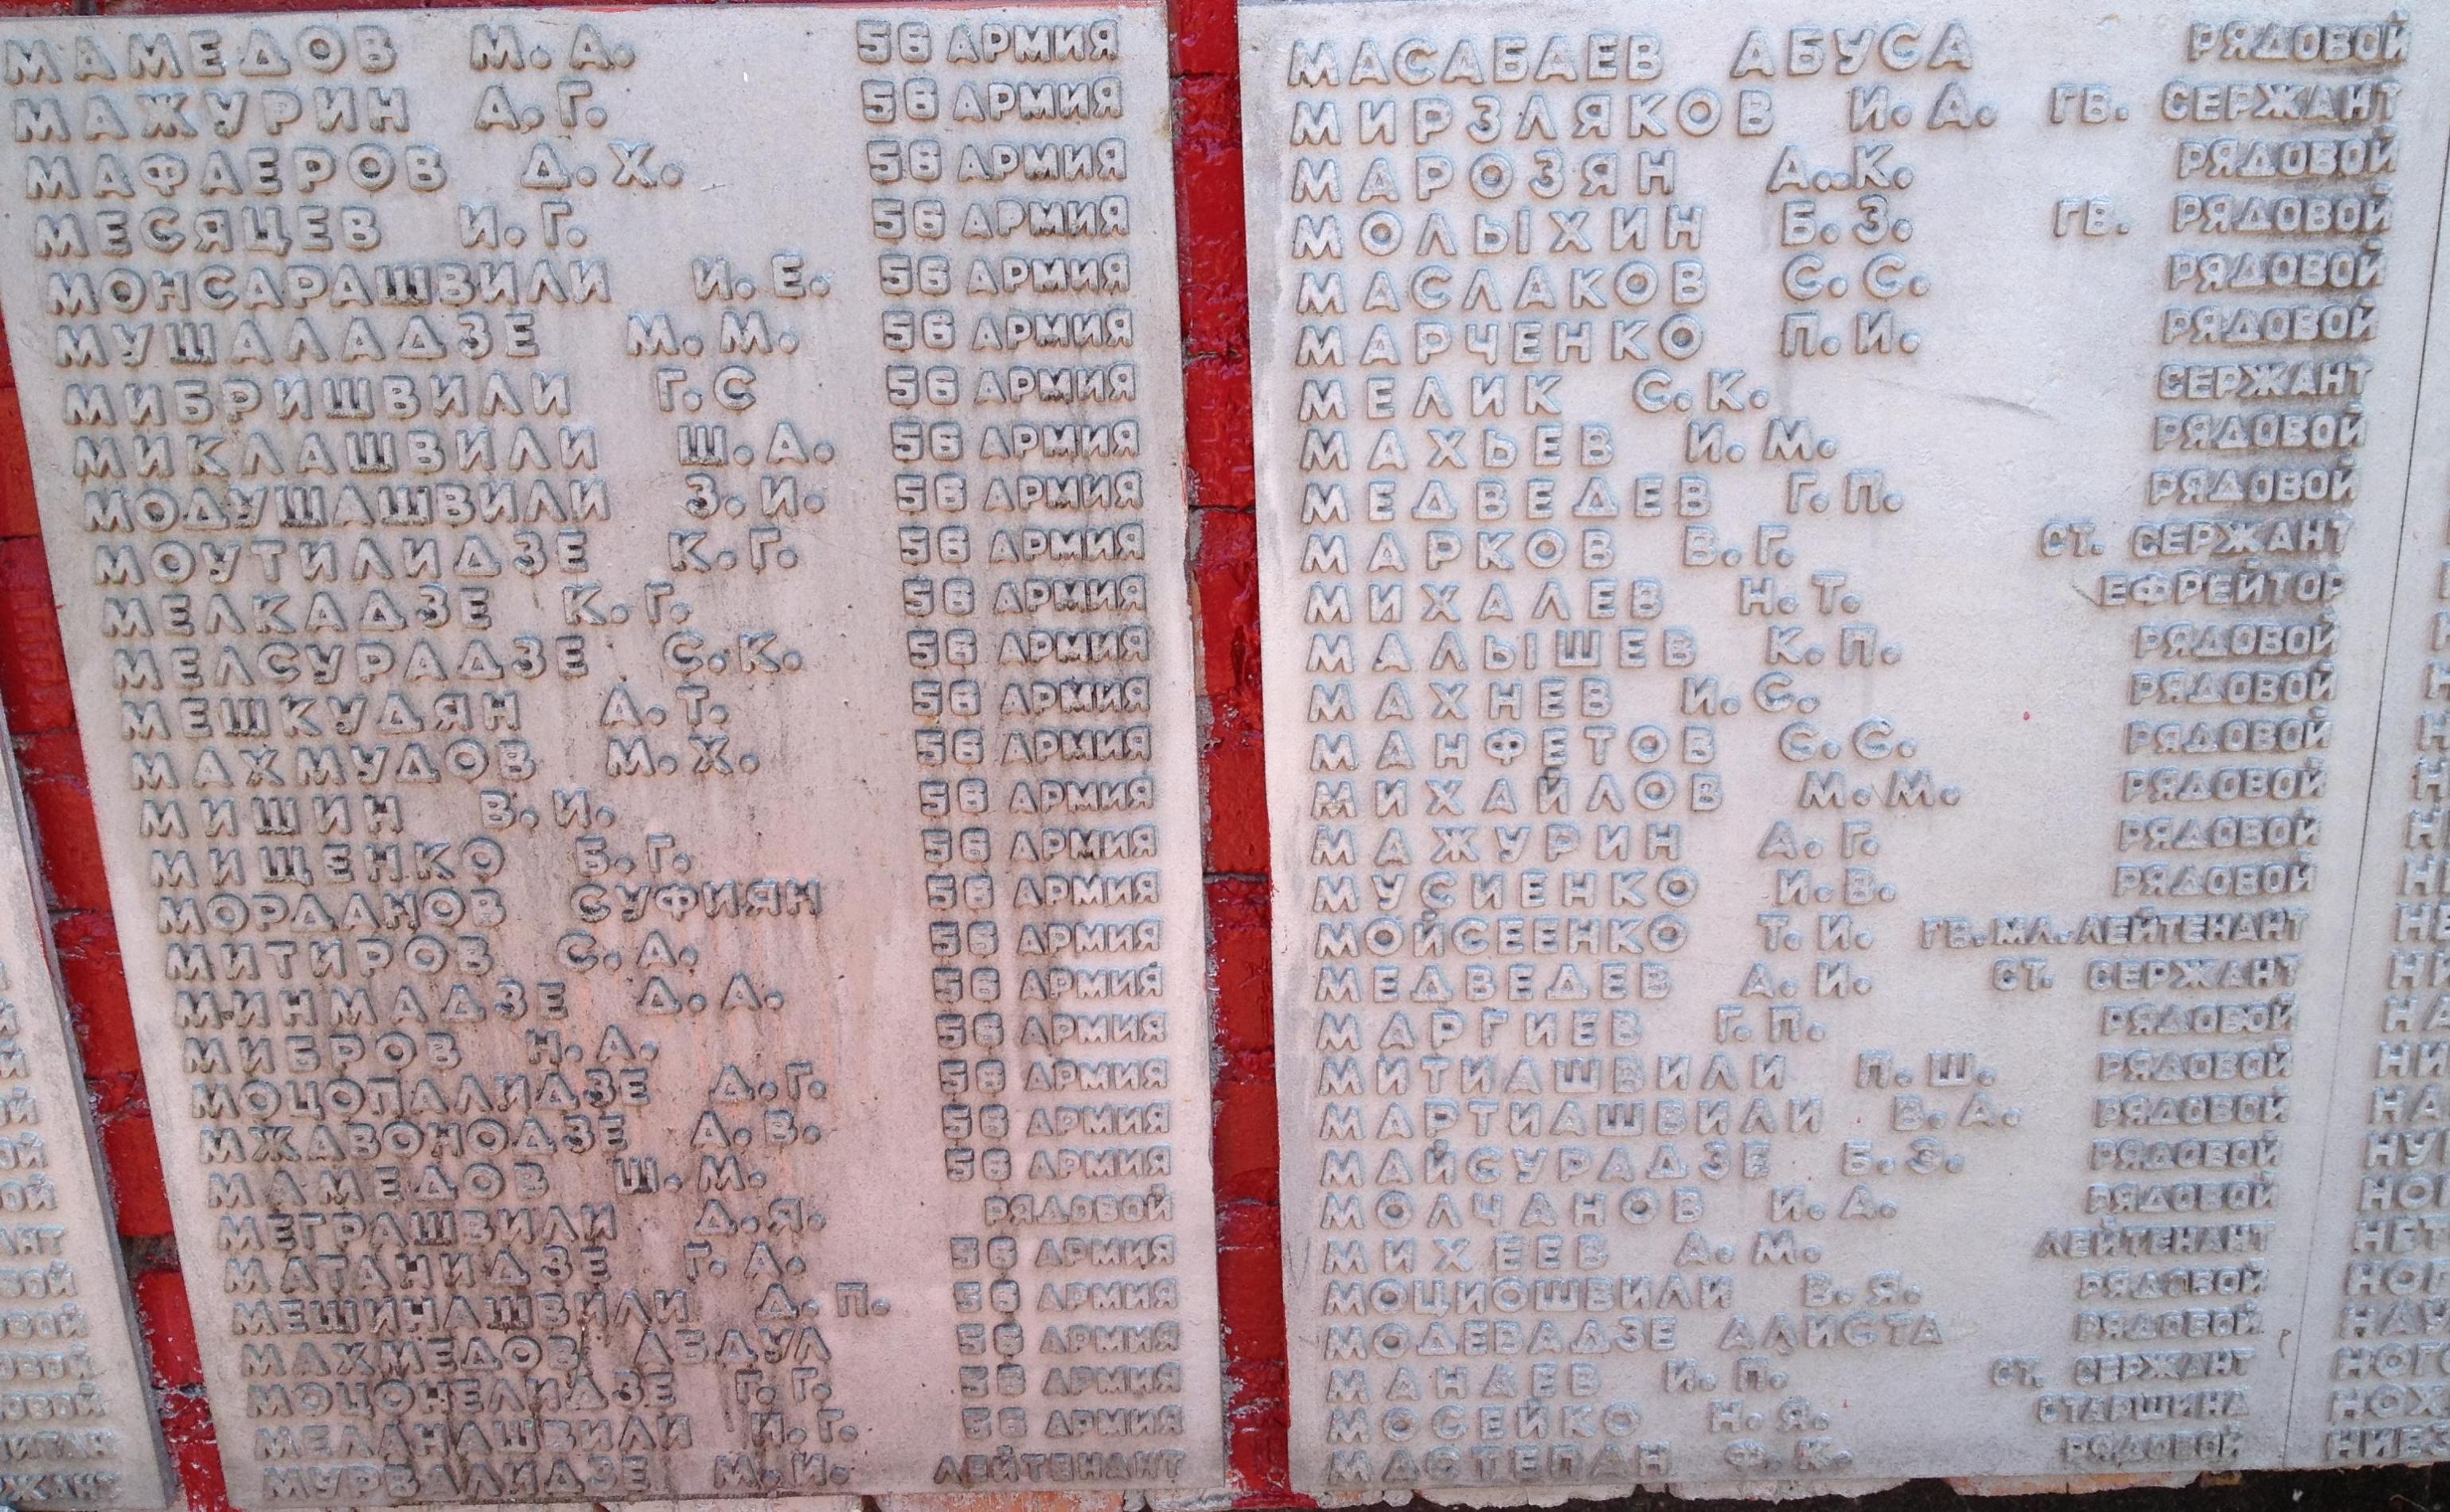 МАМЕДОВ М.А. 56 АРМИЯ
МАЖУРИН А.Г. 56 АРМИЯ
МАФАЕРОВ Д.Х. 56 АРМИЯ
МЕСЯЦЕВ И.Г. 56 АРМИЯ
МОНСАРАШВИЛИ И.Е. 56 АРМИЯ
МУШАЛАДЗЕ М.М. 56 АРМИЯ
МИБРИШВИЛИ Г.С 56 АРМИЯ
МИКЛАШВИЛИ Ш.А. 56 АРМИЯ
МОДУШАШВИЛИ З.И. 56 АРМИЯ
МОУТИЛИДЗЕ К.Г. 56 АРМИЯ
МЕЛКАДЗЕ К.Г. 56 АРМИЯ
МЕЛСУРАДЗЕ С.К. 56 АРМИЯ
МЕШКУДЯН А.Т. 56 АРМИЯ
МАХМУДОВ М.Х. 56 АРМИЯ
МИШИН В.И. 56 АРМИЯ
МИЩЕНКО Б.Г. 56 АРМИЯ
МОРДАНОВ СУФИЯН 56 АРМИЯ
МИТИРОВ С.А. 56 АРМИЯ
МИНМАДЗЕ Д.А. 56 АРМИЯ
МИБРОВ Н.А. 56 АРМИЯ
МОЦОПАЛИДЗЕ Д.Г. 56 АРМИЯ
МЖАВОНОДЗЕ А.В. 56 АРМИЯ
МАМЕДОВ Ш.М. 56 АРМИЯ
МЕГРАШВИЛИ Д.Я. РЯДОВОЙ
МАТАНИДЗЕ Г.А. 56 АРМИЯ
МЕШИНАШВИЛИ Д.П. 56 АРМИЯ
МАХМЕДОВ АБДУЛ 56 АРМИЯ
МОЦОНЕЛИДЗЕ Г.Г. 56 АРМИЯ
МЕЛАНАШВИЛИ И.Г. 56 АРМИЯ
МУРВАЛИДЗЕ М.И. ЛЕЙТЕНАНТ
МАСАБАЕВ АБУСА РЯДОВОЙ
МИРЗЛЯКОВ И.А. ГВ. СЕРЖАНТ
МАРОЗЯН А..К. РЯДОВОЙ
МОЛЫХИН Б.З. ГВ. РЯДОВОЙ
МАСЛАКОВ С.С. РЯДОВОЙ
МАРЧЕНКО П.И. РЯДОВОЙ
МЕЛИК С.К. СЕРЖАНТ
МАХЬЕВ И.М. РЯДОВОЙ
МЕДВЕДЕВ Г.П. РЯДОВОЙ
МАРКОВ В.Г. СТ. СЕРЖАНТ
МИХАЛЕВ Н.Т. ЕФРЕЙТОР
МАЛЫШЕВ К.П. РЯДОВОЙ
МАХНЕВ И.С. РЯДОВОЙ
МАНФЕТОВ С.С. РЯДОВОЙ
МИХАЙЛОВ М.М. РЯДОВОЙ
МАЖУРИН А.Г. РЯДОВОЙ
МУСИЕНКО И.В. РЯДОВОЙ
МОЙСЕЕНКО Т.И. ГВ.МЛ.ЛЕЙТЕНАНТ
МЕДВЕДЕВ А.И. СТ. СЕРЖАНТ
МАРГИЕВ Г.П. РЯДОВОЙ
МИТИАШВИЛИ П.Ш. РЯДОВОЙ
МАРТИАШВИЛИ В.А. РЯДОВОЙ
МАЙСУРАДЗЕ Б.З. РЯДОВОЙ
МОЛЧАНОВ И.А. РЯДОВОЙ
МИХЕЕВ А.М. ЛЕЙТЕНАНТ
МОЦИОШВИЛИ В.Я. РЯДОВОЙ
МОДЕВАДЗЕ АЛИСТА РЯДОВОЙ
МАНАЕВ И.П. СТ. СЕРЖАНТ
МОСЕЙКО Н.Я. СТАРШИНА
МАСТЕПАН Ф.К. РЯДОВОЙ